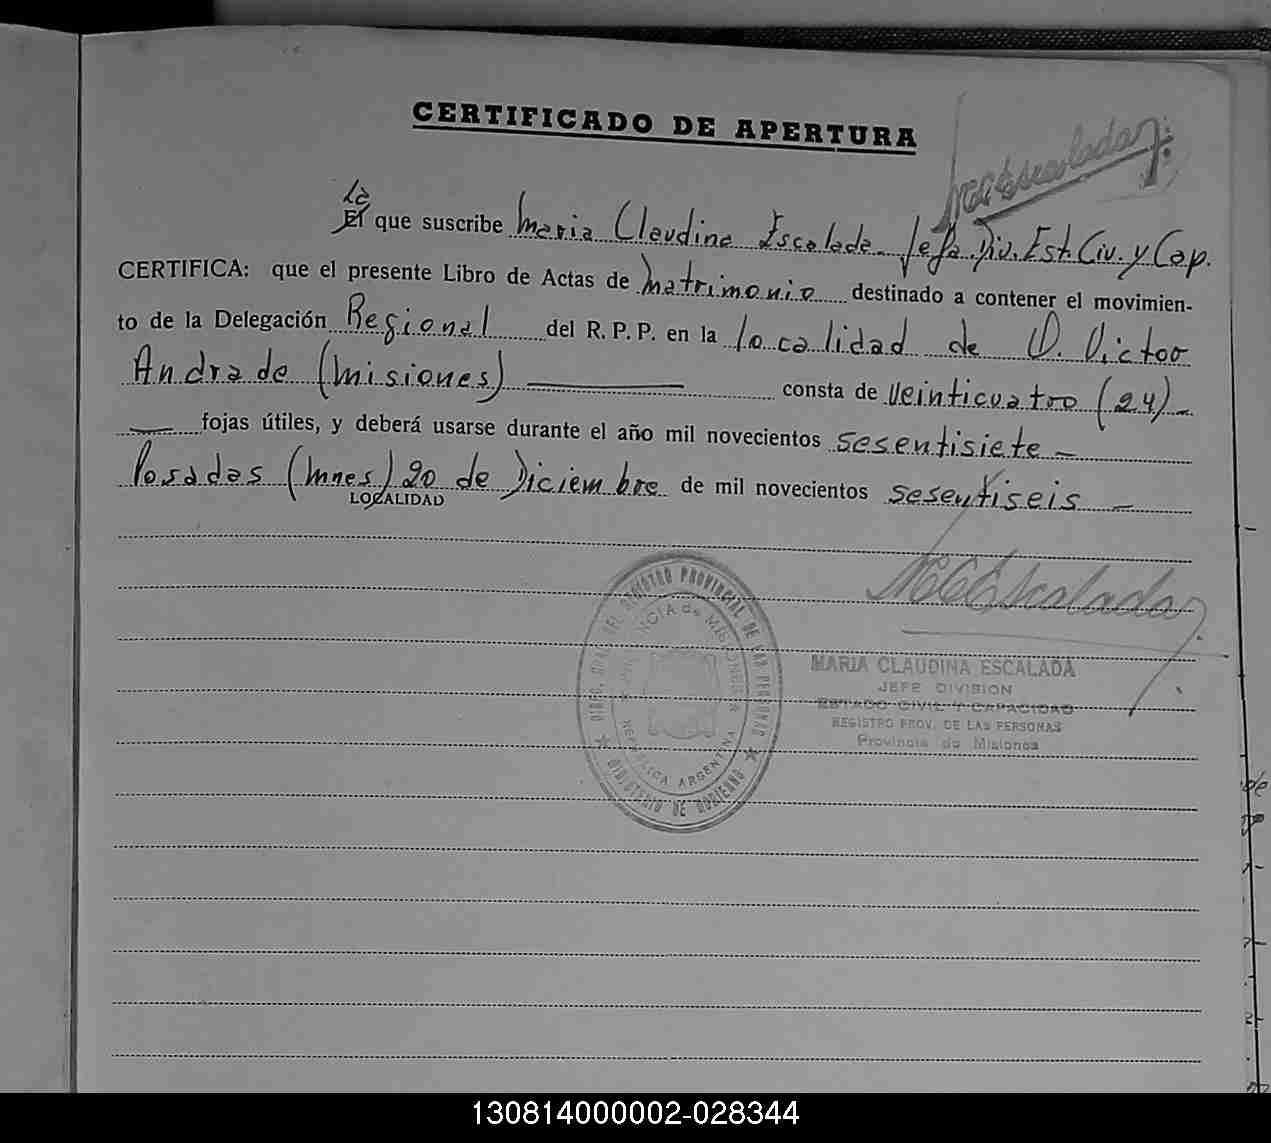 CERTIFICADO DE APERTURA
MCEscalada
La
El que suscribe Maria Claudina Escalada Jefa Div. Est. Civ. y Cap.
CERTIFICA: que el presente Libro de Actas de Matrimonio destinado a contener el movimien-
to de la Delegación Regional del R. P. P. en la localidad de O. Victor
Andrade (Misiones) consta de veinticuatro (24)-
fojas útiles, y deberá usarse durante el año mil novecientos sesentisiete-
Posadas (Mnes) 20 de Diciembre de mil novecientos sesentiseis-
LOCALIDAD
MCEscalada
MARIA CLAUDINA ESCALADA
JEFE DIVISION
ESTADO CIVIL Y CAPACIDAD
REGISTRO PROV. DE LAS PERSONAS
Provincia de Misiones
DIREC. GRAL. DEL REGISTRO PROVINCIAL DE LAS PERSONAS
PROVINCIA de MISIONES
REPUBLICA ARGENTINA
MINISTERIO DE GOBIERNO
de
130814000002-028344